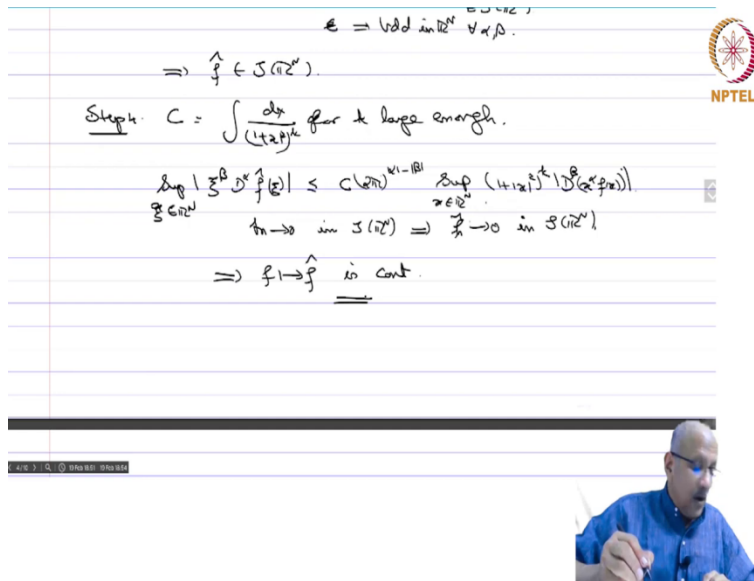 ⇒ bdd in ℝᴺ ∀ α, β.
⇒ f̂ ∈ S(ℝᴺ).
NPTEL
Step 4. C = ∫ dx / (1+|x|²)ᵏ for k large enough.
Sup_{ξ∈ℝᴺ} |ξ^β D^α f̂(ξ)| ≤ C(2π)^{|α|-|β|} Sup_{x∈ℝᴺ} (1+|x|²)ᵏ |D^β(x^α f(x))|.
fₙ → 0 in S(ℝᴺ) ⇒ f̂ₙ → 0 in S(ℝᴺ).
⇒ f ↦ f̂ is cont.
4/10